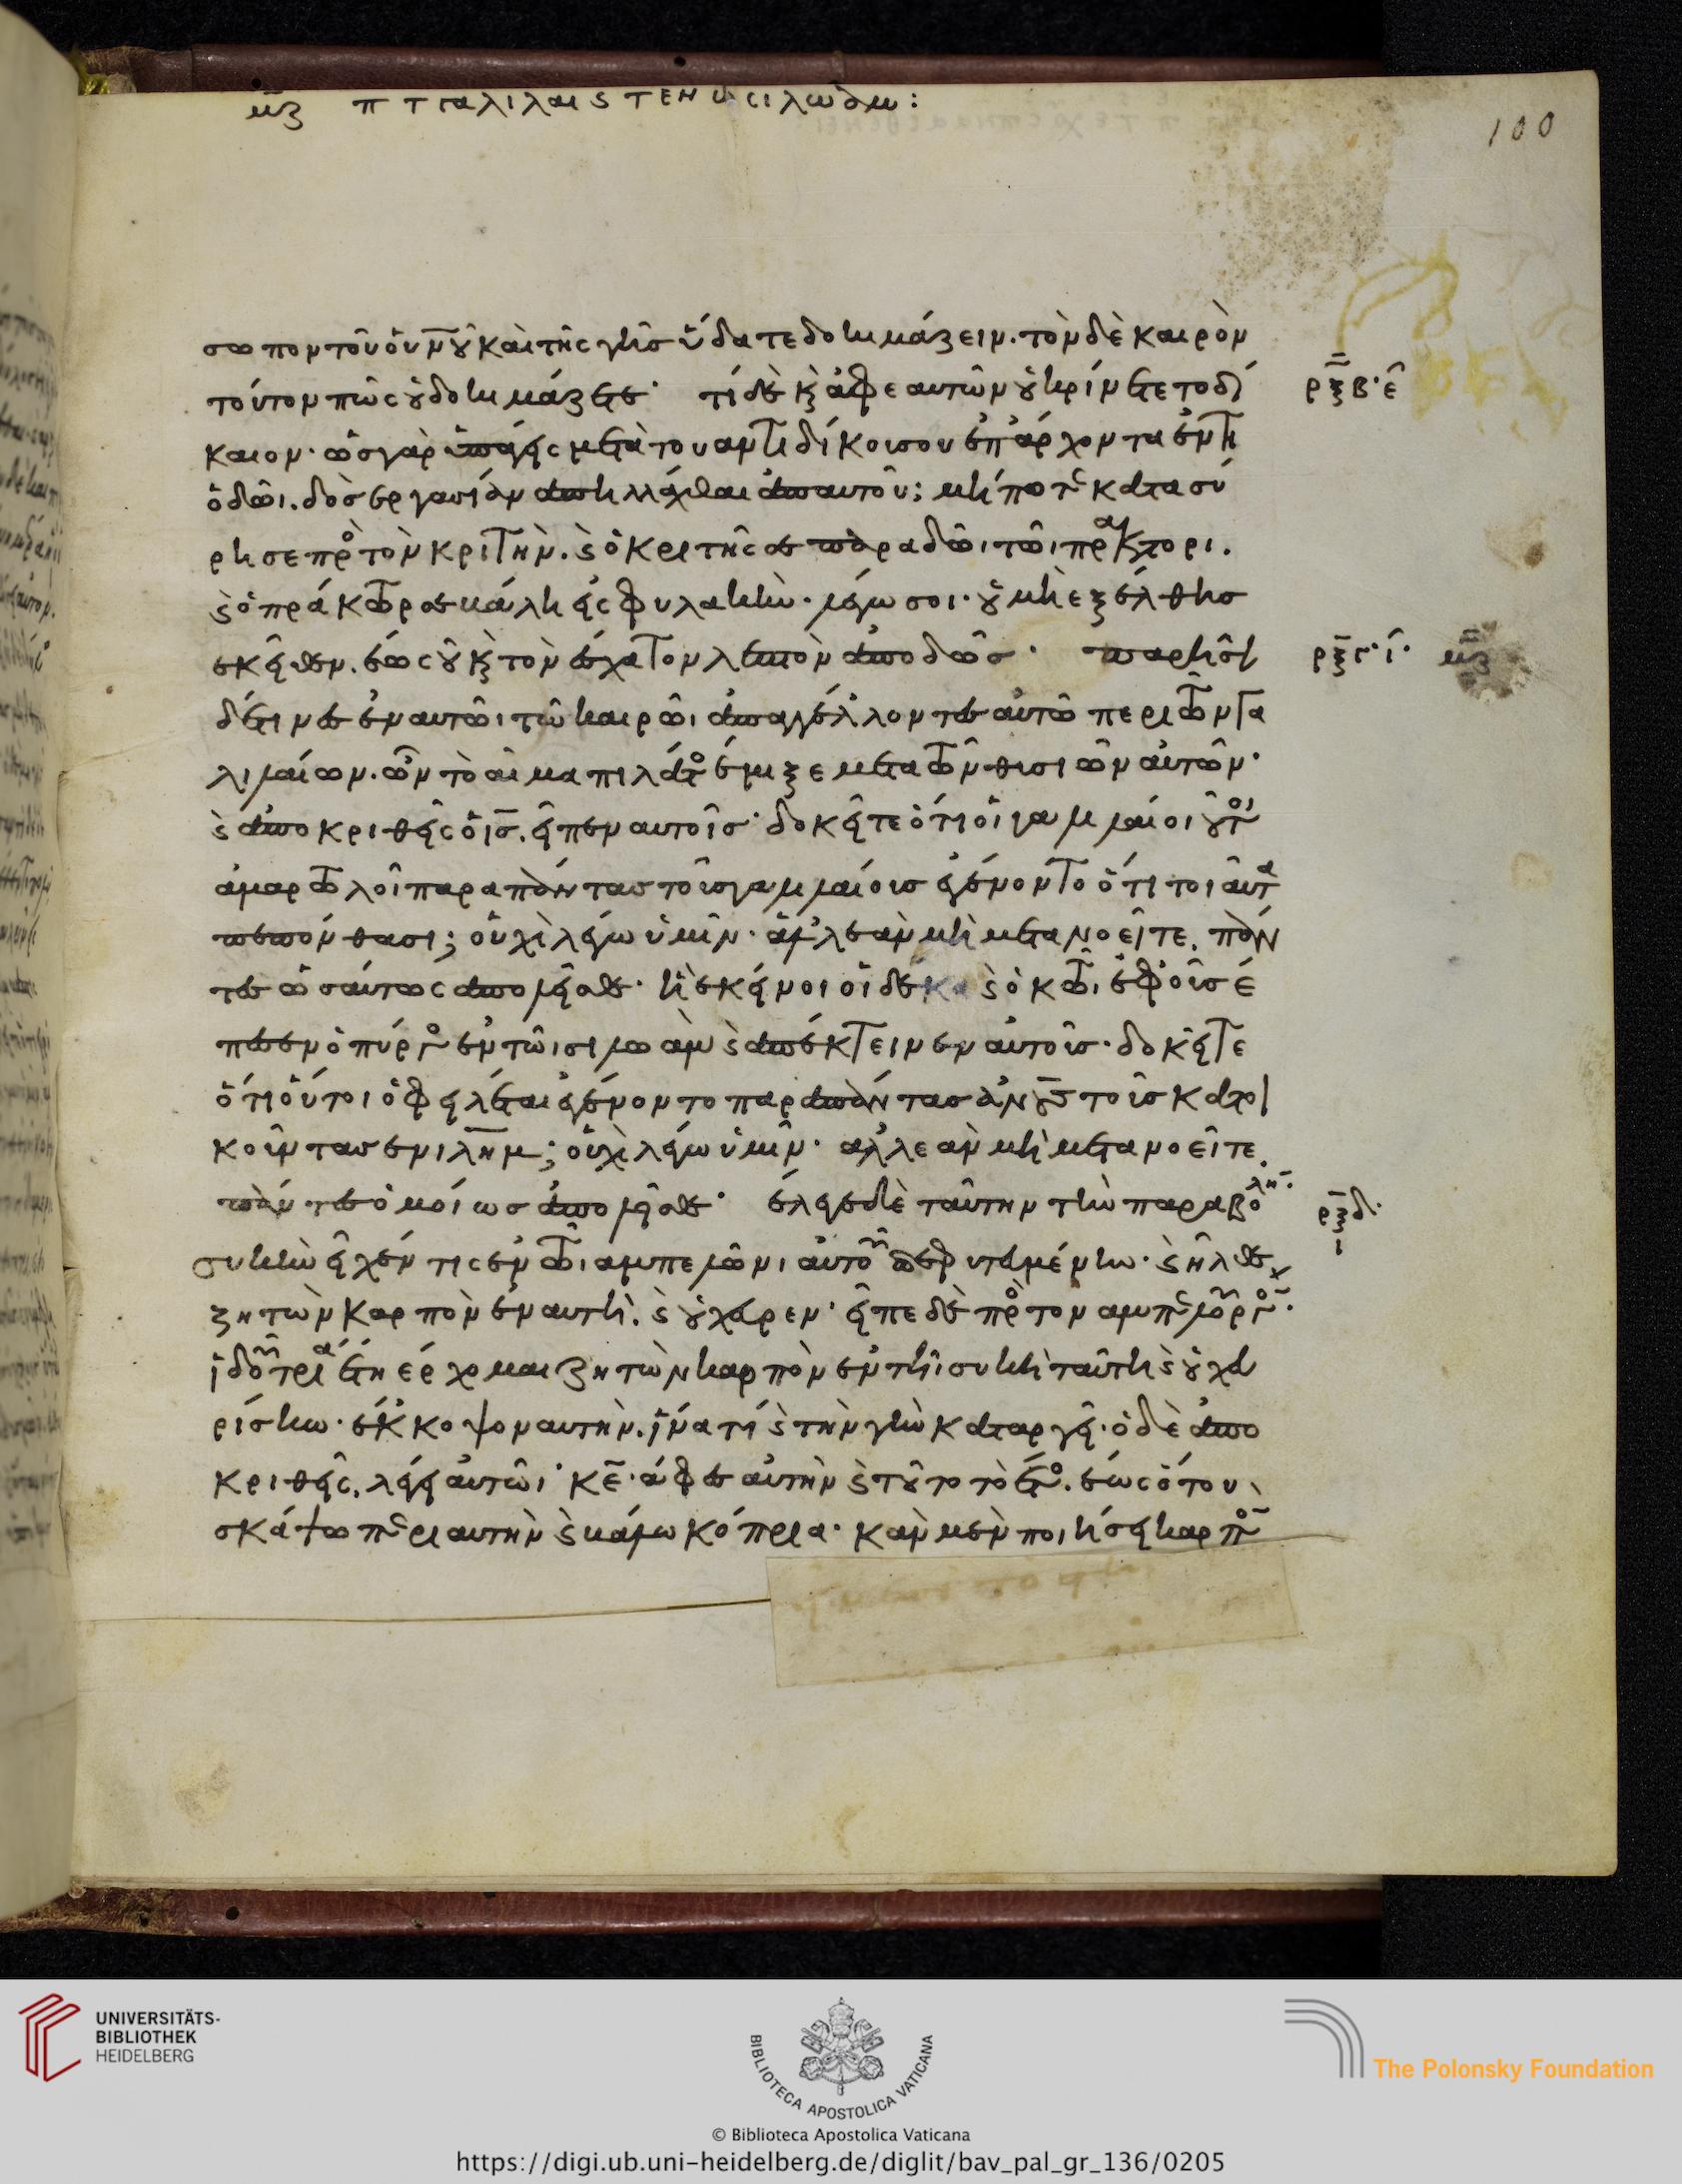 μζ π τ γαλιλαι ϛ τεν σιλωαμ:
100
σωπον τοῦ οὐνου καὶ τῆς γῆς οἴδατε δοκιμάζειν. τὸν δὲ καιρὸν
τοῦτον πῶς οὐ δοκιμάζετε· τί δὲ καὶ ἀφ ἑαυτῶν οὐ κρίνετε το δί
ρξβ· ε
καιον· ὡς γὰρ ὑπάγεις μετὰ του αντιδίκου σου ἐπ ἄρχοντα ἐν τῆ
ὁδῶι. δὸς ἐργασίαν ἀπηλλάχθαι ἀπ αυτοῦ; μήποτε κατασύ
ρη σε πρὸς τὸν κριτὴν. καὶ ὁ κριτής σε παραδῶι τῶι πράκτορι.
καὶ ὁ πράκτωρ σε βάλη εἰς φυλακὴν· λέγω σοι· οὐ μὴ εξέλθης
ἐκεῖθεν. ἕως οὗ καὶ τὸν ἔσχατον λεπτὸν ἀποδῶς· παρῆσαν
ρξγ· ι· μζ
δέ τινες ἐν αυτῶι τῶ καιρῶι ἀπαγγέλλοντες αὐτῶ περι τῶν γα
λιλαίων. ὧν τὸ αἷμα πιλάτος ἔμιξε μετα τῶν θυσιῶν αὐτῶν·
καὶ ἀποκριθεὶς ὁ ις. εἶπεν αυτοῖς· δοκεῖτε ὅτι οἱ γαλιλαίοι οὗτοι
ἁμαρτωλοὶ παρα πάντας τοὺς γαλιλαίους εγένοντο ὅτι τοιαῦτα
πεπόνθασι; οὐχὶ λέγω ὑμῖν· ἀλλ ἐὰν μὴ μετανοεῖτε. πάν
τες ὡσαύτως ἀπολεῖσθε· ἢ ἐκεῖνοι οἱ δέκα καὶ ὀκτὼ. ἐφ οὓς ἔ
πεσεν ὁ πύργος ἐν τῶι σιλωὰμ καὶ ἀπέκτεινεν αυτούς· δοκεῖτε
ὅτι οὗτοι ὀφειλέται εγένοντο παρὰ πάντας ἀνους τοὺς κατοι
κοῦντας εν ιλημ; οὐχὶ λέγω ὑμῖν· αλλ εὰν μὴ μετανοεῖτε.
πάντες ὁμοίως ἀπολεῖσθε· ἔλεγε δὲ ταύτην τὴν παραβολήν:
ρξδ· ι
συκῆν εἶχέν τις ἐν τῶι αμπελῶνι αὐτοῦ πεφυτευμένην· καὶ ἦλθε
ζητῶν καρπὸν ἐν αυτῆ. καὶ οὐχ εὗρεν· εἶπε δὲ πρὸς τον αμπελουργόν·
ἰδοὺ τρία ἔτη έρχομαι ζητῶν καρπὸν ἐν τῆ συκῆ ταύτη καὶ οὐχ εὑ
ρίσκω· ἔκκοψον αυτὴν. ἵνα τί καὶ τὴν γῆν καταργεῖ· ὁ δὲ ἀπο
κριθεὶς. λέγει αὐτῶι· κε· ἄφες αὐτὴν καὶ τοῦτο τὸ ἔτος. ἕως ὅτου
σκάψω περι αυτὴν καὶ βάλω κόπρια· κὰν μὲν ποιήση καρπὸν
UNIVERSITÄTS-
BIBLIOTHEK
HEIDELBERG
BIBLIOTECA APOSTOLICA VATICANA
The Polonsky Foundation
© Biblioteca Apostolica Vaticana
https://digi.ub.uni-heidelberg.de/diglit/bav_pal_gr_136/0205